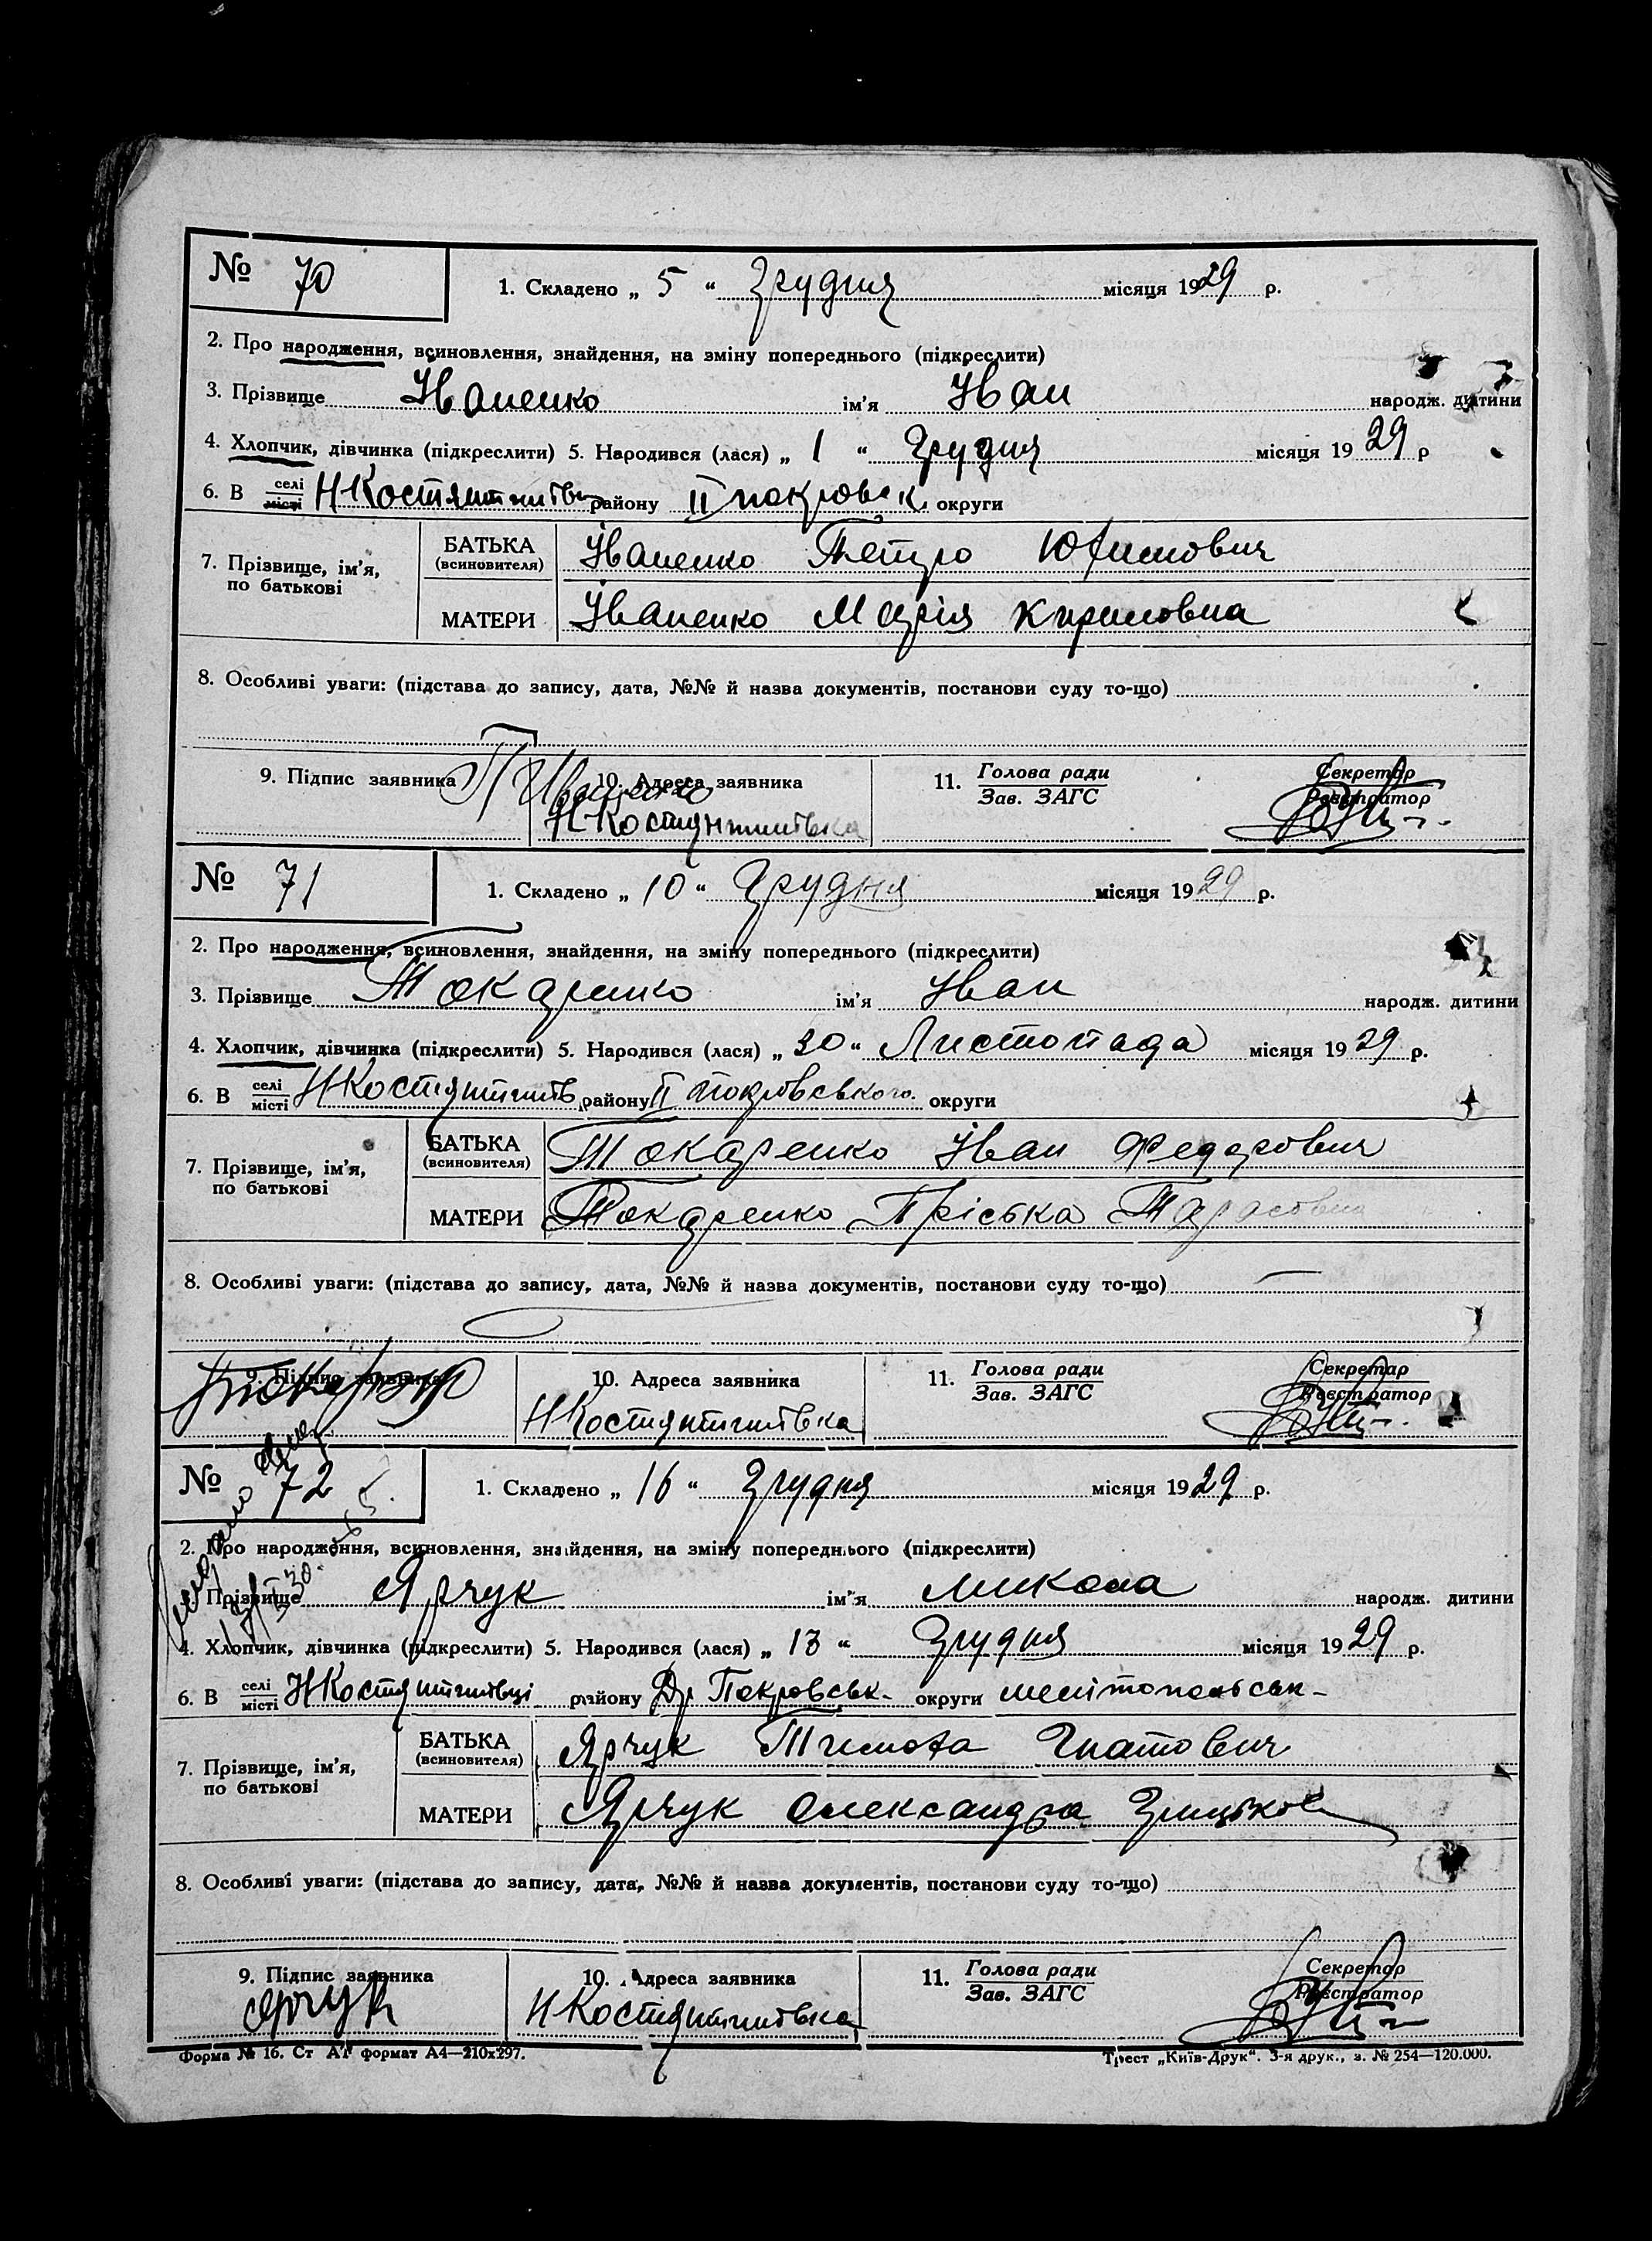 № 70
1. Складено „ 5 “ Грудня місяця 1929 р.
2. Про народження, всиновлення, знайдення, на зміну попереднього (підкреслити)
3. Прізвище Іваненко ім'я Іван народж. дитини
4. Хлопчик, дівчинка (підкреслити) 5. Народився (лася) „ 1 “ Грудня місяця 1929 р
6. В селі місті НКостянтинівц району II покровськ. округи
7. Прізвище, ім'я, по батькові
БАТЬКА (всиновителя) Іваненко Петро Юхимович
МАТЕРИ Іваненко Марія Кириловна
8. Особливі уваги: (підстава до запису, дата, №№ й назва документів, постанови суду то-що)
9. Підпис заявника П Іваненко
10. Адреса заявника НКостянтинівка
11. Голова ради Зав. ЗАГС
Секретар Реєстратор
№ 71
1. Складено „ 10 “ Грудня місяця 1929 р.
2. Про народження, всиновлення, знайдення, на зміну попереднього (підкреслити)
3. Прізвище Токаренко ім'я Іван народж. дитини
4. Хлопчик, дівчинка (підкреслити) 5. Народився (лася) „ 30 “ Листопада місяця 1929 р.
6. В селі місті НКостянтинів району II покровського округи
7. Прізвище, ім'я, по батькові
БАТЬКА (всиновителя) Токаренко Іван Федорович
МАТЕРИ Токаренко Пріська Тарасовна
8. Особливі уваги: (підстава до запису, дата, №№ й назва документів, постанови суду то-що)
9. Підпис заявника
10. Адреса заявника НКостянтинівка
11. Голова ради Зав. ЗАГС
Секретар Реєстратор
№ 72
1. Складено „ 16 “ Грудня місяця 1929 р.
2. Про народження, всиновлення, знайдення, на зміну попереднього (підкреслити)
3. Прізвище Ярчук ім'я Микола народж. дитини
4. Хлопчик, дівчинка (підкреслити) 5. Народився (лася) „ 13 “ Грудня місяця 1929 р.
6. В селі місті НКостянтинівці району Др Покровськ. округи мелітопольськ-
7. Прізвище, ім'я, по батькові
БАТЬКА (всиновителя) Ярчук Тимоха Гнатович
МАТЕРИ Ярчук Олександра Грицьков
8. Особливі уваги: (підстава до запису, дата, №№ й назва документів, постанови суду то-що)
9. Підпис заявника Ярчук
10. Адреса заявника НКостянтинівка
11. Голова ради Зав. ЗАГС
Секретар Реєстратор
Форма № 16. Ст А1 формат А4—210x297.
Трест „Київ-Друк“. 3-я друк., з. № 254—120.000.